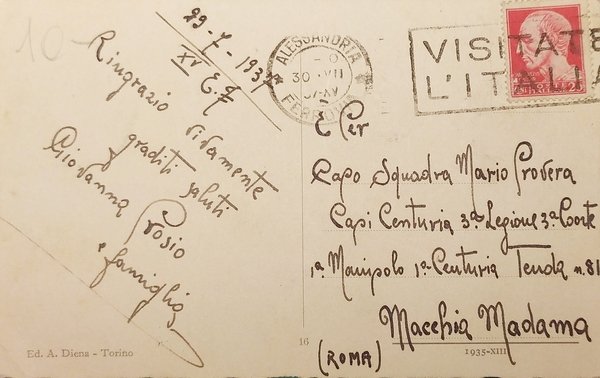 10-
29-7-1937
XV E.F
Ringrazio vivamente
graditi saluti
Giovanna Prosio
e famiglia
Ed. A. Diena - Torino
16
1935-XIII
ALESSANDRIA
30.VII
37-XV
FERROVIA
VISITATE
L'ITALIA
Per
Capo Squadra Mario Provera
Capi Centuria 3ª Legione 3ª Coorte
1ª Manipolo 1ª Centuria Tenda n. 81
Macchia Madama
(ROMA)